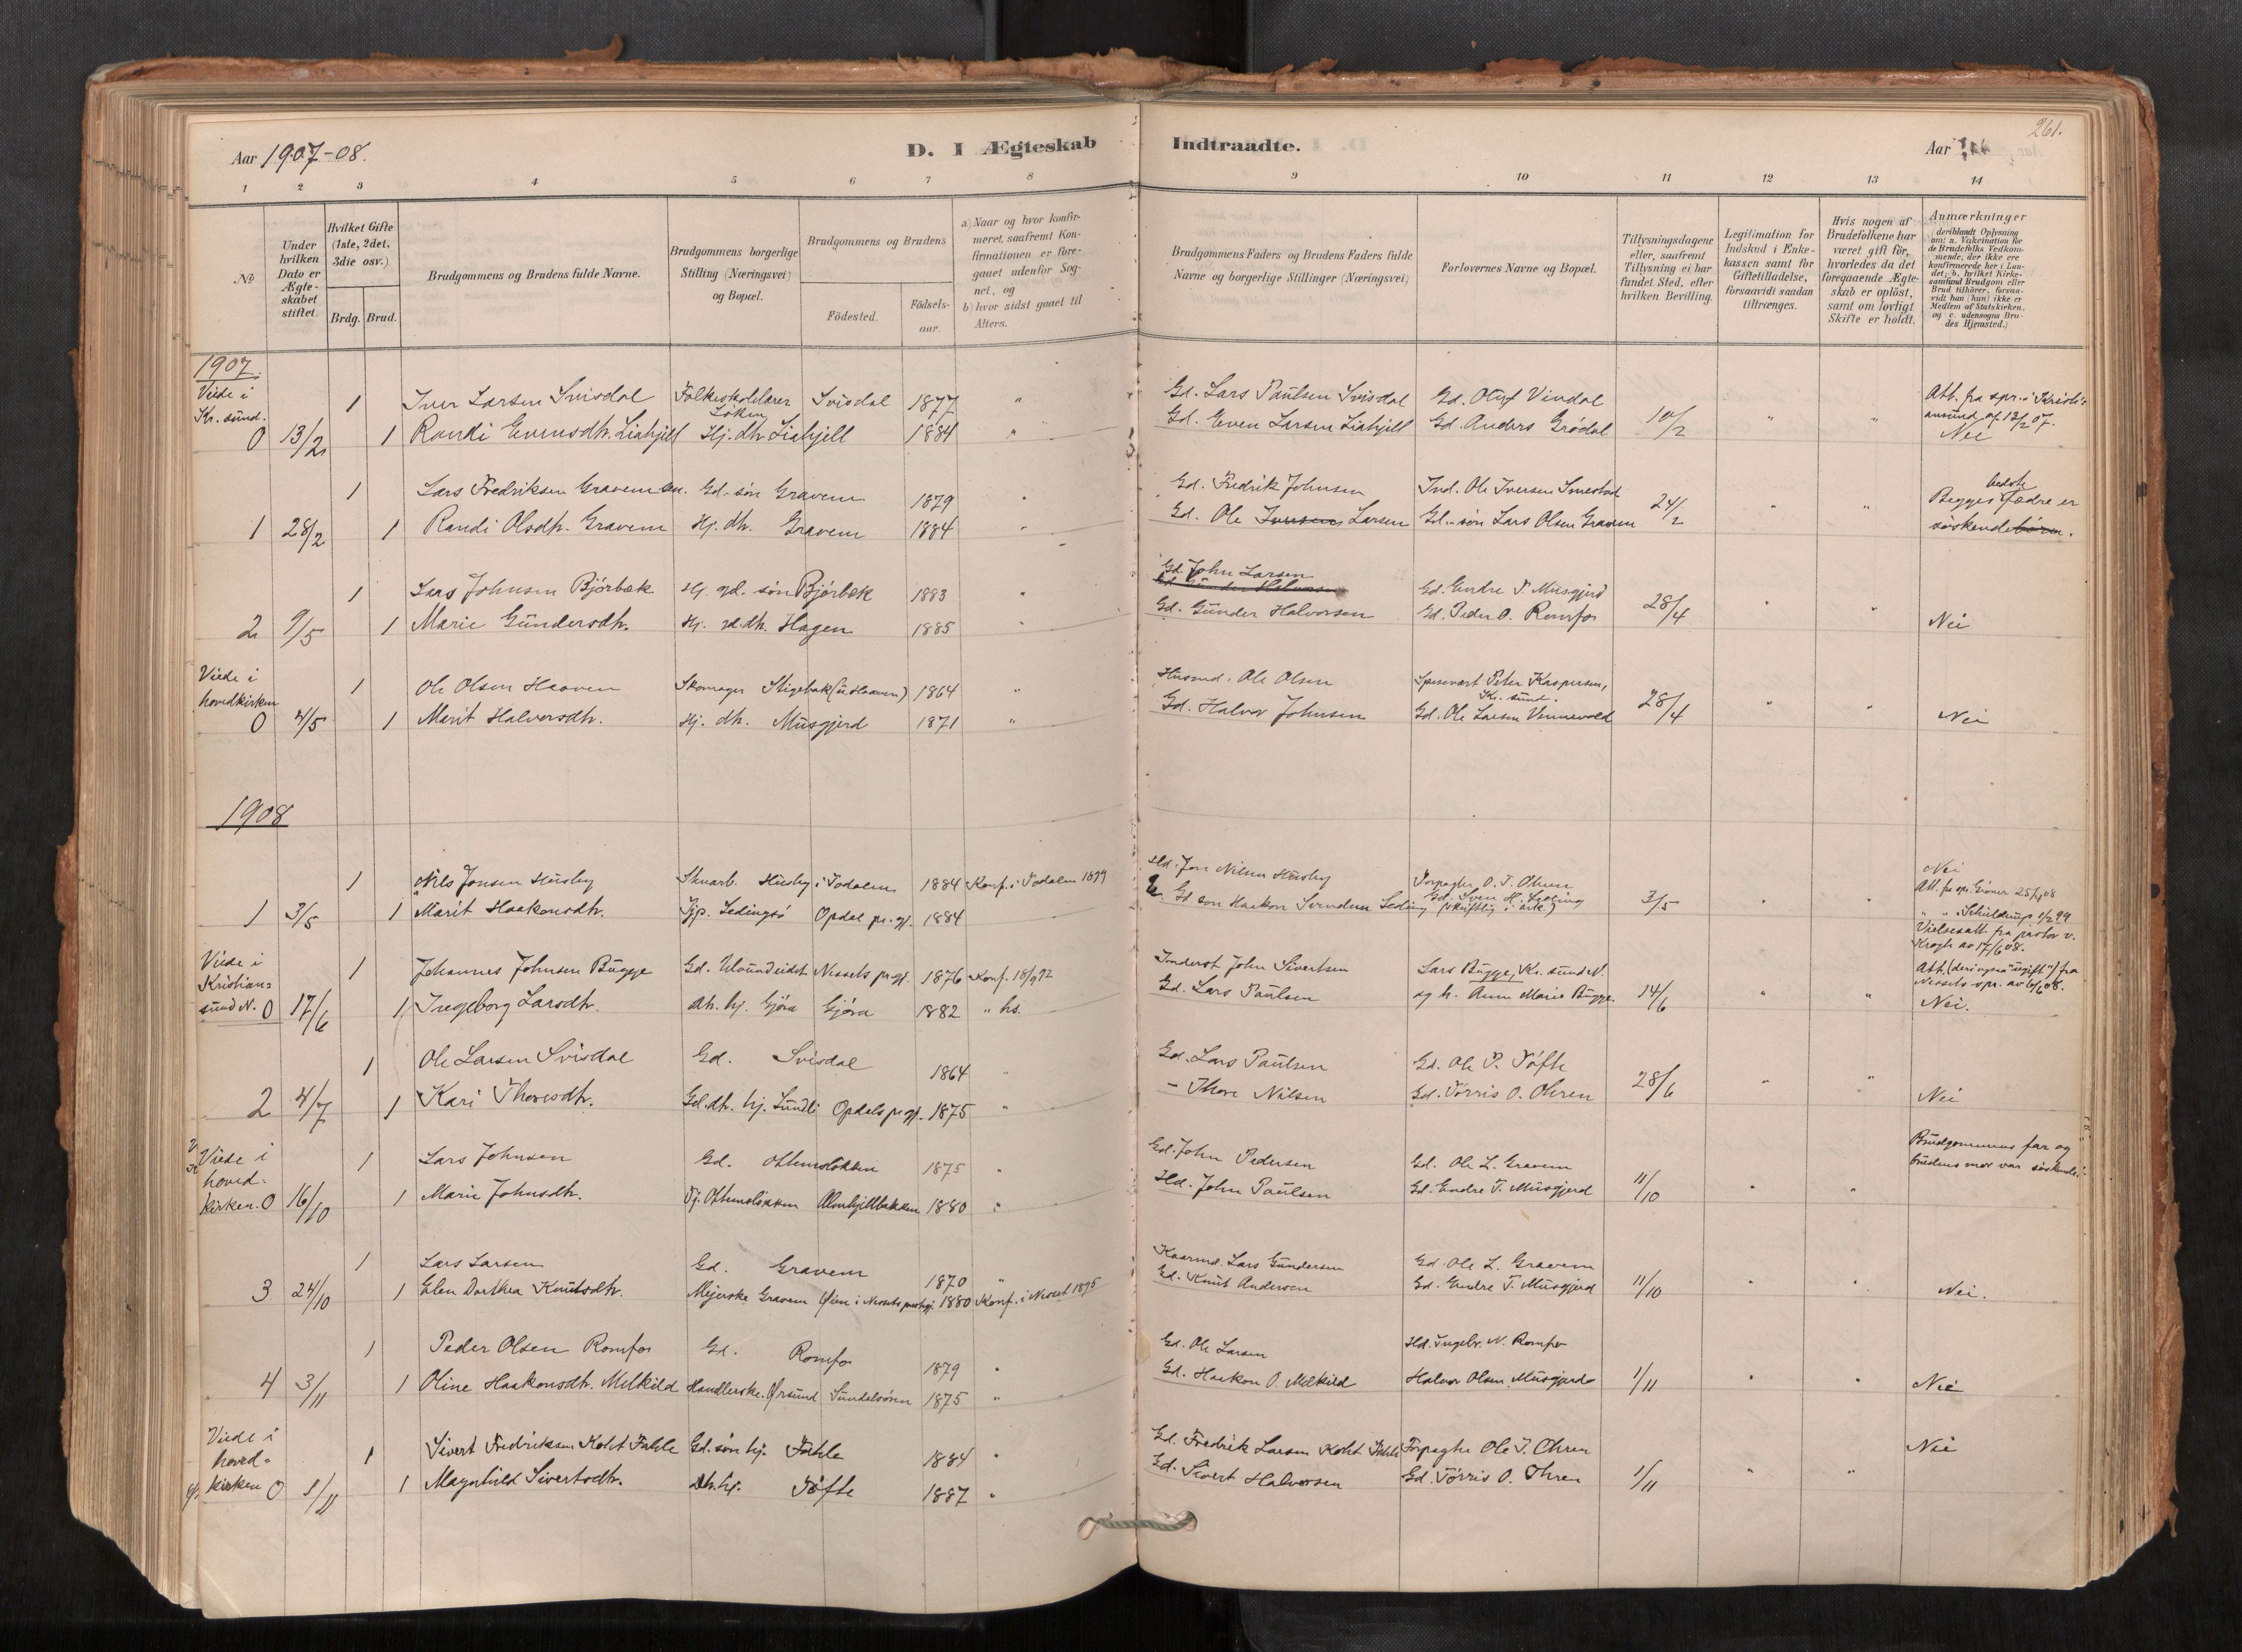 261.
Aar 1907-08. D. I Ægteskab Indtraadte. Aar
1 2 3 4 5 6 7 8 9 10 11 12 13 14
№
Under hvilken Dato er Ægteskabet stiftet.
Hvilket Gifte (1ste, 2det, 3die osv.)
Brdg. Brud.
Brudgommens og Brudens fulde Navne.
Brudgommens borgerlige Stilling (Næringsvei) og Bopæl.
Brudgommens og Brudens
Födested. Födsels-aar.
a) Naar og hvor konfir-
meret, saafremt Kon-
firmationen er fore-
gaaet udenfor Sog-
net, og
b) hvor sidst gaaet til
Alters.
Brudgommens Faders og Brudens Faders fulde
Navne og borgerlige Stillinger (Næringsvei)
Forlovernes Navne og Bopæl.
Tillysningsdagene
eller, saafremt
Tillysning ei har
fundet Sted, efter
hvilken Bevilling.
Legitimation for
Indskud i Enke-
kassen samt for
Giftetilladelse,
forsaavidt saadan
tiltrænges.
Hvis nogen af
Brudefolkene har
været gift för,
hvorledes da det
foregaaende Ægte-
skab er oplöst,
samt om lovligt
Skifte er holdt.
Anmærkninger
(deriblandt Oplysning
om: a. Vakcination for
de Brudefolks Vedkom-
mende, der ikke ere
konfirmerede her i Lan-
det; b. hvilket Kirke-
samfund Brudgom eller
Brud tilhörer, forsaa-
vidt han (hun) ikke er
Medlem af Statskirken,
og c. udensogns Bru-
des Hjemsted.)
1907.
Viede i
Kr. sund.
1 Iver Larsen Svisdal Folkeskolelærer Løken Svisdal 1877 " Gd. Lars Paulsen Svisdal Gd. Oluf Vindal Att. fra spr. i Kristi-
ansund af 12/2 07.
0 13/2 1 Randi Evensdtr. Liahjell Hj. dtr Liahjell 1884 " Gd. Even Larsen Liahjell Gd. Anders Grødal 10/2 " " Nei
1 Lars Fredriksen Gravem Gd. søn Gravem 1879 " Gd. Fredrik Johnsen Ind. Ole Iversen Smestad Begges bedste
fædre er
1 28/2 1 Randi Olsdtr. Gravem Hj. dtr. Gravem 1884 " Gd. Ole Iversen Larsen Gd.-søn Lars Olsen Gravem 24/2 " " søskendebørn.
1 Lars Johnsen Bjørbæk Hj. gd. søn Bjørbæk 1883 " Gd. John Larsen
Gd. Gunder Halvorsen Gd. Endre T. Musgjerd
2 9/5 1 Marie Gundersdtr. Hj. gd. dtr. Hagen 1885 " Gd. Gunder Halvorsen Gd. Peder O. Romfo 28/4 " " Nei
Viede i
hovedkirken
1 Ole Olsen Haaven Skomager Stigebak (u. Haaven) 1864 " Husmd. Ole Olsen Spisevært Peter Kaspersen,
Kr. sund.
0 4/5 1 Marit Halvorsdtr. Hj. dtr. Musgjerd 1871 " Gd. Halvor Johnsen Gd. Ole Larsen Vennevold 28/4 " " Nei
1908
1 Nils Jonsen Husby Skuarb. Husby i Todalen 1884 Konf. i Todalen 1899 Hd. Jon Nilsen Husby Forpagter O. T. Ohren Nei
Att. fra spr. Grøner 25/4 08
1 3/5 1 Marit Haakonsdtr. Tjp. Ledingsø Opdal pr. gj. 1884 Gd. søn Haakon Svendsen Leding Gd. Sven H. Leding
(skriftlig i ark.) 3/5 " " Schulderup 1/2 99
Viede i
Kristian-
sund N.
Vielsesatt. fra pastor v.
Krogh av 17/6 08.
1 Johannes Johnsen Bugge Gd. Uloundeidet Nesset pr. gj. 1876 Konf. 18/9 92 Inderst John Sivertsen Lars Bugge, Kr. sund N. Att. (deri ogsaa "ugift") fra
Nessets spr. av 6/6 08.
0 17/6 1 Ingeborg Larsdtr. dtr. hj. Gjøra Gjøra 1882 " hs. Gd. Lars Paulsen og h. Ann Marie Bugge 14/6 " " Nei.
1 Ole Larsen Svisdal Gd. Svisdal 1864 " Gd. Lars Paulsen Gd. Ole P. Tøfte
2 4/7 1 Kari Thoresdtr. Gd. dtr. hj. Lundli Opdals pr. gj. 1875 " - Thore Nilsen Gd. Tørris O. Ohren 28/6 " " Nei
Viede i
hoved-
kirken.
1 Lars Johnsen Gd. Ottemsløkken 1875 " Gd. John Pedersen Gd. Ole L. Gravem Brudgommens far og
brudens mor var søskende.
0 16/10 1 Marie Johnsdtr. Tj. Ottemsløkken Almhjellbakken 1880 " Hd. John Paulsen Gd. Endre T. Musgjerd 11/10 " "
1 Lars Larsen Gd. Gravem 1870 " Kaarmd. Lars Gundersen Gd. Ole L. Gravem
3 24/10 1 Elen Dorthea Knutsdtr. Mejerske Gravem Øien i Nessets prestgj. 1880 Konf. i Nesset 1895 Gd. Knut Andersen Gd. Endre T. Musgjerd 11/10 " " Nei.
1 Peder Olsen Romfo Gd. Romfo 1879 " Gd. Ole Larsen Hd. Ingebr. N. Romfo
4 3/11 1 Oline Haakonsdtr. Melkild Handlerske. Ørsund Sundalsøren 1875 " Gd. Haakon O. Melkild Halvor Olsen Musgjerd 1/11 " " Nei
Viede i
hoved-
kirken
1 Sivert Fredriksen Koht Fahle Gd. søn hj. Fahle 1884 " Gd. Fredrik Larsen Koht Fahle Forpagter Ole T. Ohren Nei
0 1/11 1 Magnhild Sivertsdtr. Dtr. hj. Tøfte 1887 " Gd. Sivert Halvorsen Gd. Tørris O. Ohren 1/11 " "